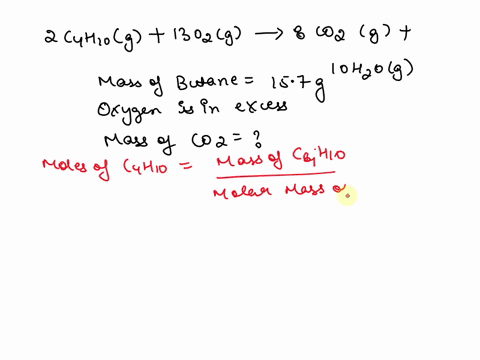 2 C4H10(g) + 13 O2(g) → 8 CO2 (g) +
10H2O(g)
Mass of Butane = 15.7 g
Oxygen is in excess
Mass of CO2 = ?
Moles of C4H10 = Mass of C4H10
Molar Mass o